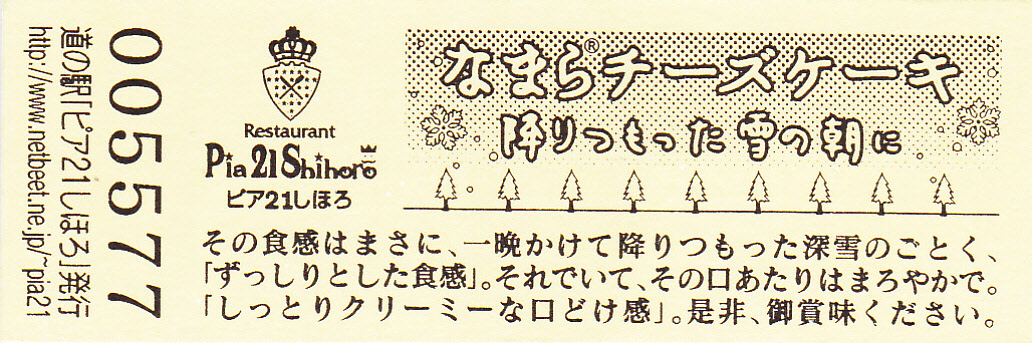 なまら®チーズケーキ
降りつもった雪の朝に
Restaurant
Pia 21 Shihoro
ピア21しほろ
その食感はまさに、一晩かけて降りつもった深雪のごとく、
「ずっしりとした食感」。それでいて、その口あたりはまろやかで。
「しっとりクリーミーな口どけ感」。是非、御賞味ください。
005577
道の駅「ピア21しほろ」発行
http://www.netbeet.ne.jp/~pia21